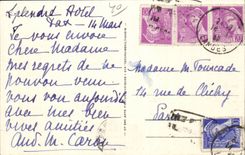 Splendid Hotel
Dax - 14 Mars
Je vous envoie
Chère Madame
mes regrets de ne
pouvoir venir
vous voir aujourd'hui
avec mes bien
vives amitiés
Aud. M. Caron
Madame M. Fourcade
14 rue de Clichy
Paris